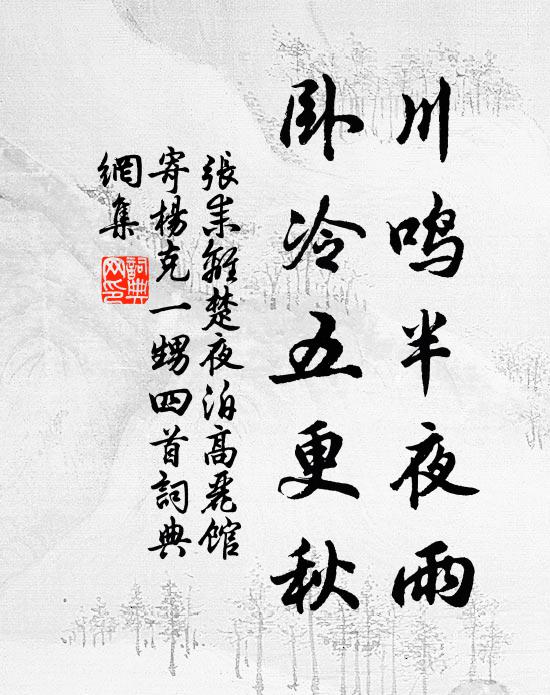 川鸣半夜雨
卧冷五更秋
張耒離楚夜泊高麗馆
寄楊克一甥四首詞典
網集
詞典网印